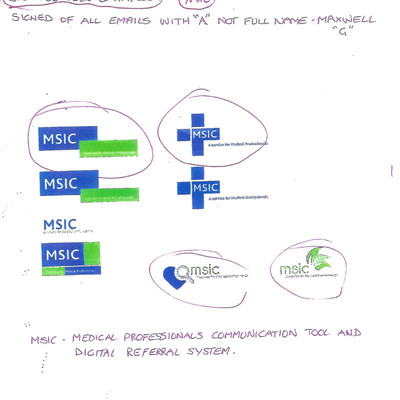 SIGNED OF ALL EMAILS WITH "A" NOT FULL NAME - MAXWELL
"G"
MSIC
MSIC
A service for Medical Professionals
MSIC
MSIC
A service for Medical Professionals
MSIC
MSIC
msic
msic
MSIC - MEDICAL PROFESSIONALS COMMUNICATION TOOL AND
DIGITAL REFERRAL SYSTEM.